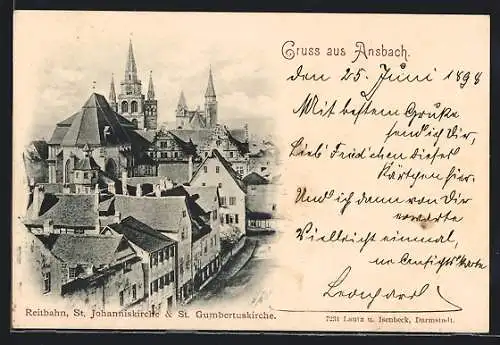 Gruss aus Ansbach.
den 25. Juni 1898
Mit bestem Gruße
send ich dir,
Lieb' Friedchen dieses
Kärtchen hier.
Und ich dann von Dir
erwarte
Vielleicht einmal,
ne Ansichtskarte
Leonhard.
Reitbahn, St. Johanniskirche & St. Gumbertuskirche.
7231 Lautz u. Isenbeck, Darmstadt.